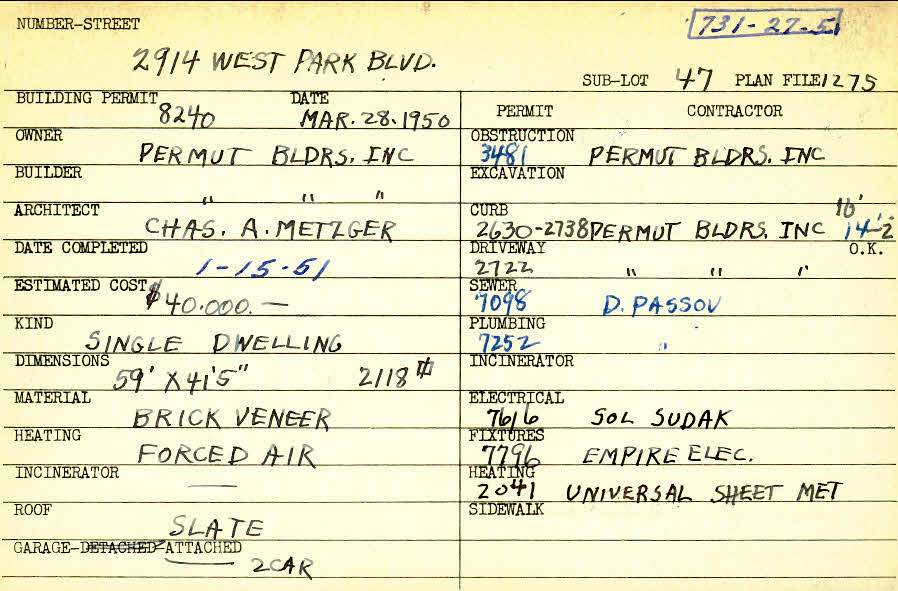 NUMBER-STREET
731-27-5
2914 WEST PARK BLVD.
SUB-LOT 47 PLAN FILE 1275
BUILDING PERMIT 8240 DATE MAR. 28. 1950
OWNER PERMUT BLDRS. INC
BUILDER " " "
ARCHITECT CHAS. A. METZGER
DATE COMPLETED 1-15-51
ESTIMATED COST $40.000.—
KIND SINGLE DWELLING
DIMENSIONS 59' X 41'5" 2118
MATERIAL BRICK VENEER
HEATING FORCED AIR
INCINERATOR —
ROOF SLATE
GARAGE-DETACHED-ATTACHED 2CAR
PERMIT CONTRACTOR
OBSTRUCTION 3481 PERMUT BLDRS. INC
EXCAVATION
CURB 2630-2738 PERMUT BLDRS. INC 16' 14'-2
DRIVEWAY 2722 " " " O.K.
SEWER 7098 D. PASSOV
PLUMBING 7252 "
INCINERATOR
ELECTRICAL 7616 SOL SUDAK
FIXTURES 7796 EMPIRE ELEC.
HEATING 2041 UNIVERSAL SHEET MET
SIDEWALK